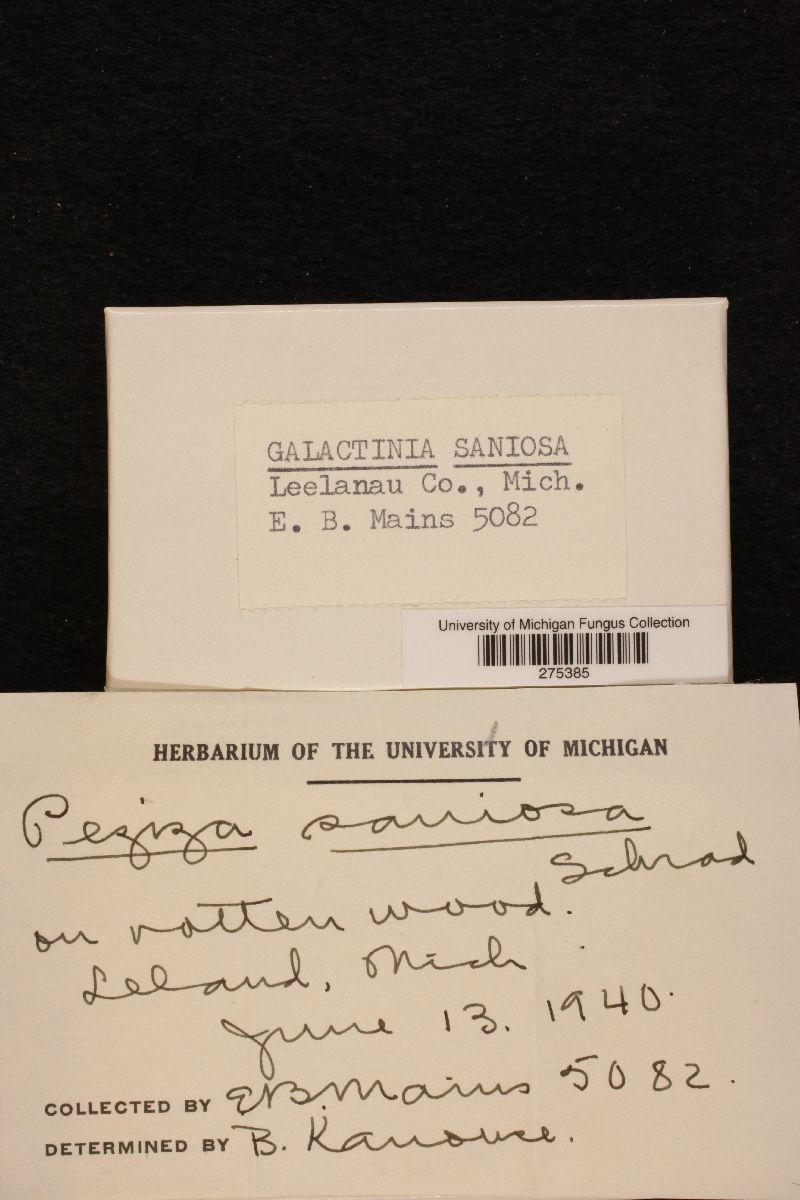 GALACTINIA SANIOSA
Leelanau Co., Mich.
E. B. Mains 5082
University of Michigan Fungus Collection
275385
HERBARIUM OF THE UNIVERSITY OF MICHIGAN
Peziza saniosa
Schrad
on rotten wood.
Leland, Mich
June 13. 1940.
COLLECTED BY E.B. Mains 5082.
DETERMINED BY B. Kanouse.